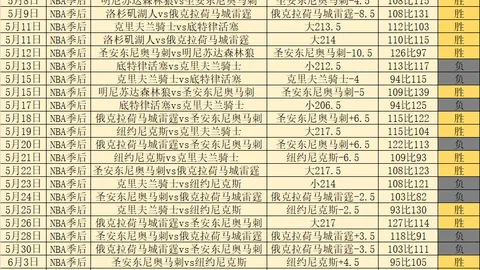 5月8日 NBA季后 明尼苏达森林狼vs圣安东尼奥马刺 圣安东尼奥马刺-4.5 108比115 胜
5月9日 NBA季后 洛杉矶湖人vs俄克拉荷马城雷霆 俄克拉荷马城雷霆-8.5 108比131 胜
5月11日 NBA季后 克里夫兰骑士vs底特律活塞 大213.5 112比103 胜
5月11日 NBA季后 洛杉矶湖人vs俄克拉荷马城雷霆 大214 110比115 胜
5月12日 NBA季后 圣安东尼奥马刺vs明尼苏达森林狼 圣安东尼奥马刺-10.5 126比97 胜
5月13日 NBA季后 底特律活塞vs克里夫兰骑士 小212.5 113比117 负
5月15日 NBA季后 克里夫兰骑士vs底特律活塞 克里夫兰骑士-4 94比115 负
5月15日 NBA季后 明尼苏达森林狼vs圣安东尼奥马刺 圣安东尼奥马刺-5 109比139 胜
5月17日 NBA季后 底特律活塞vs克里夫兰骑士 小206.5 94比125 负
5月18日 NBA季后 俄克拉荷马城雷霆vs圣安东尼奥马刺 圣安东尼奥马刺+6.5 115比122 胜
5月19日 NBA季后 纽约尼克斯vs克里夫兰骑士 大217.5 115比104 胜
5月20日 NBA季后 俄克拉荷马城雷霆vs圣安东尼奥马刺 圣安东尼奥马刺+6.5 122比113 负
5月21日 NBA季后 纽约尼克斯vs克里夫兰骑士 纽约尼克斯-6.5 109比93 胜
5月22日 NBA季后 圣安东尼奥马刺vs俄克拉荷马城雷霆 大217.5 108比123 胜
5月23日 NBA季后 克里夫兰骑士vs纽约尼克斯 小214 108比121 负
5月24日 NBA季后 圣安东尼奥马刺vs俄克拉荷马城雷霆 俄克拉荷马城雷霆-2.5 103比82 负
5月25日 NBA季后 克里夫兰骑士vs纽约尼克斯 纽约尼克斯-2.5 93比130 胜
5月26日 NBA季后 俄克拉荷马城雷霆vs圣安东尼奥马刺 大217 127比114 胜
5月28日 NBA季后 圣安东尼奥马刺vs俄克拉荷马城雷霆 俄克拉荷马城雷霆+3.5 118比91 负
5月30日 NBA季后 俄克拉荷马城雷霆vs圣安东尼奥马刺 俄克拉荷马城雷霆-3.5 103比111 负
6月3日 NBA季后 圣安东尼奥马刺vs纽约尼克斯 纽约尼克斯+4.5 95比105 胜